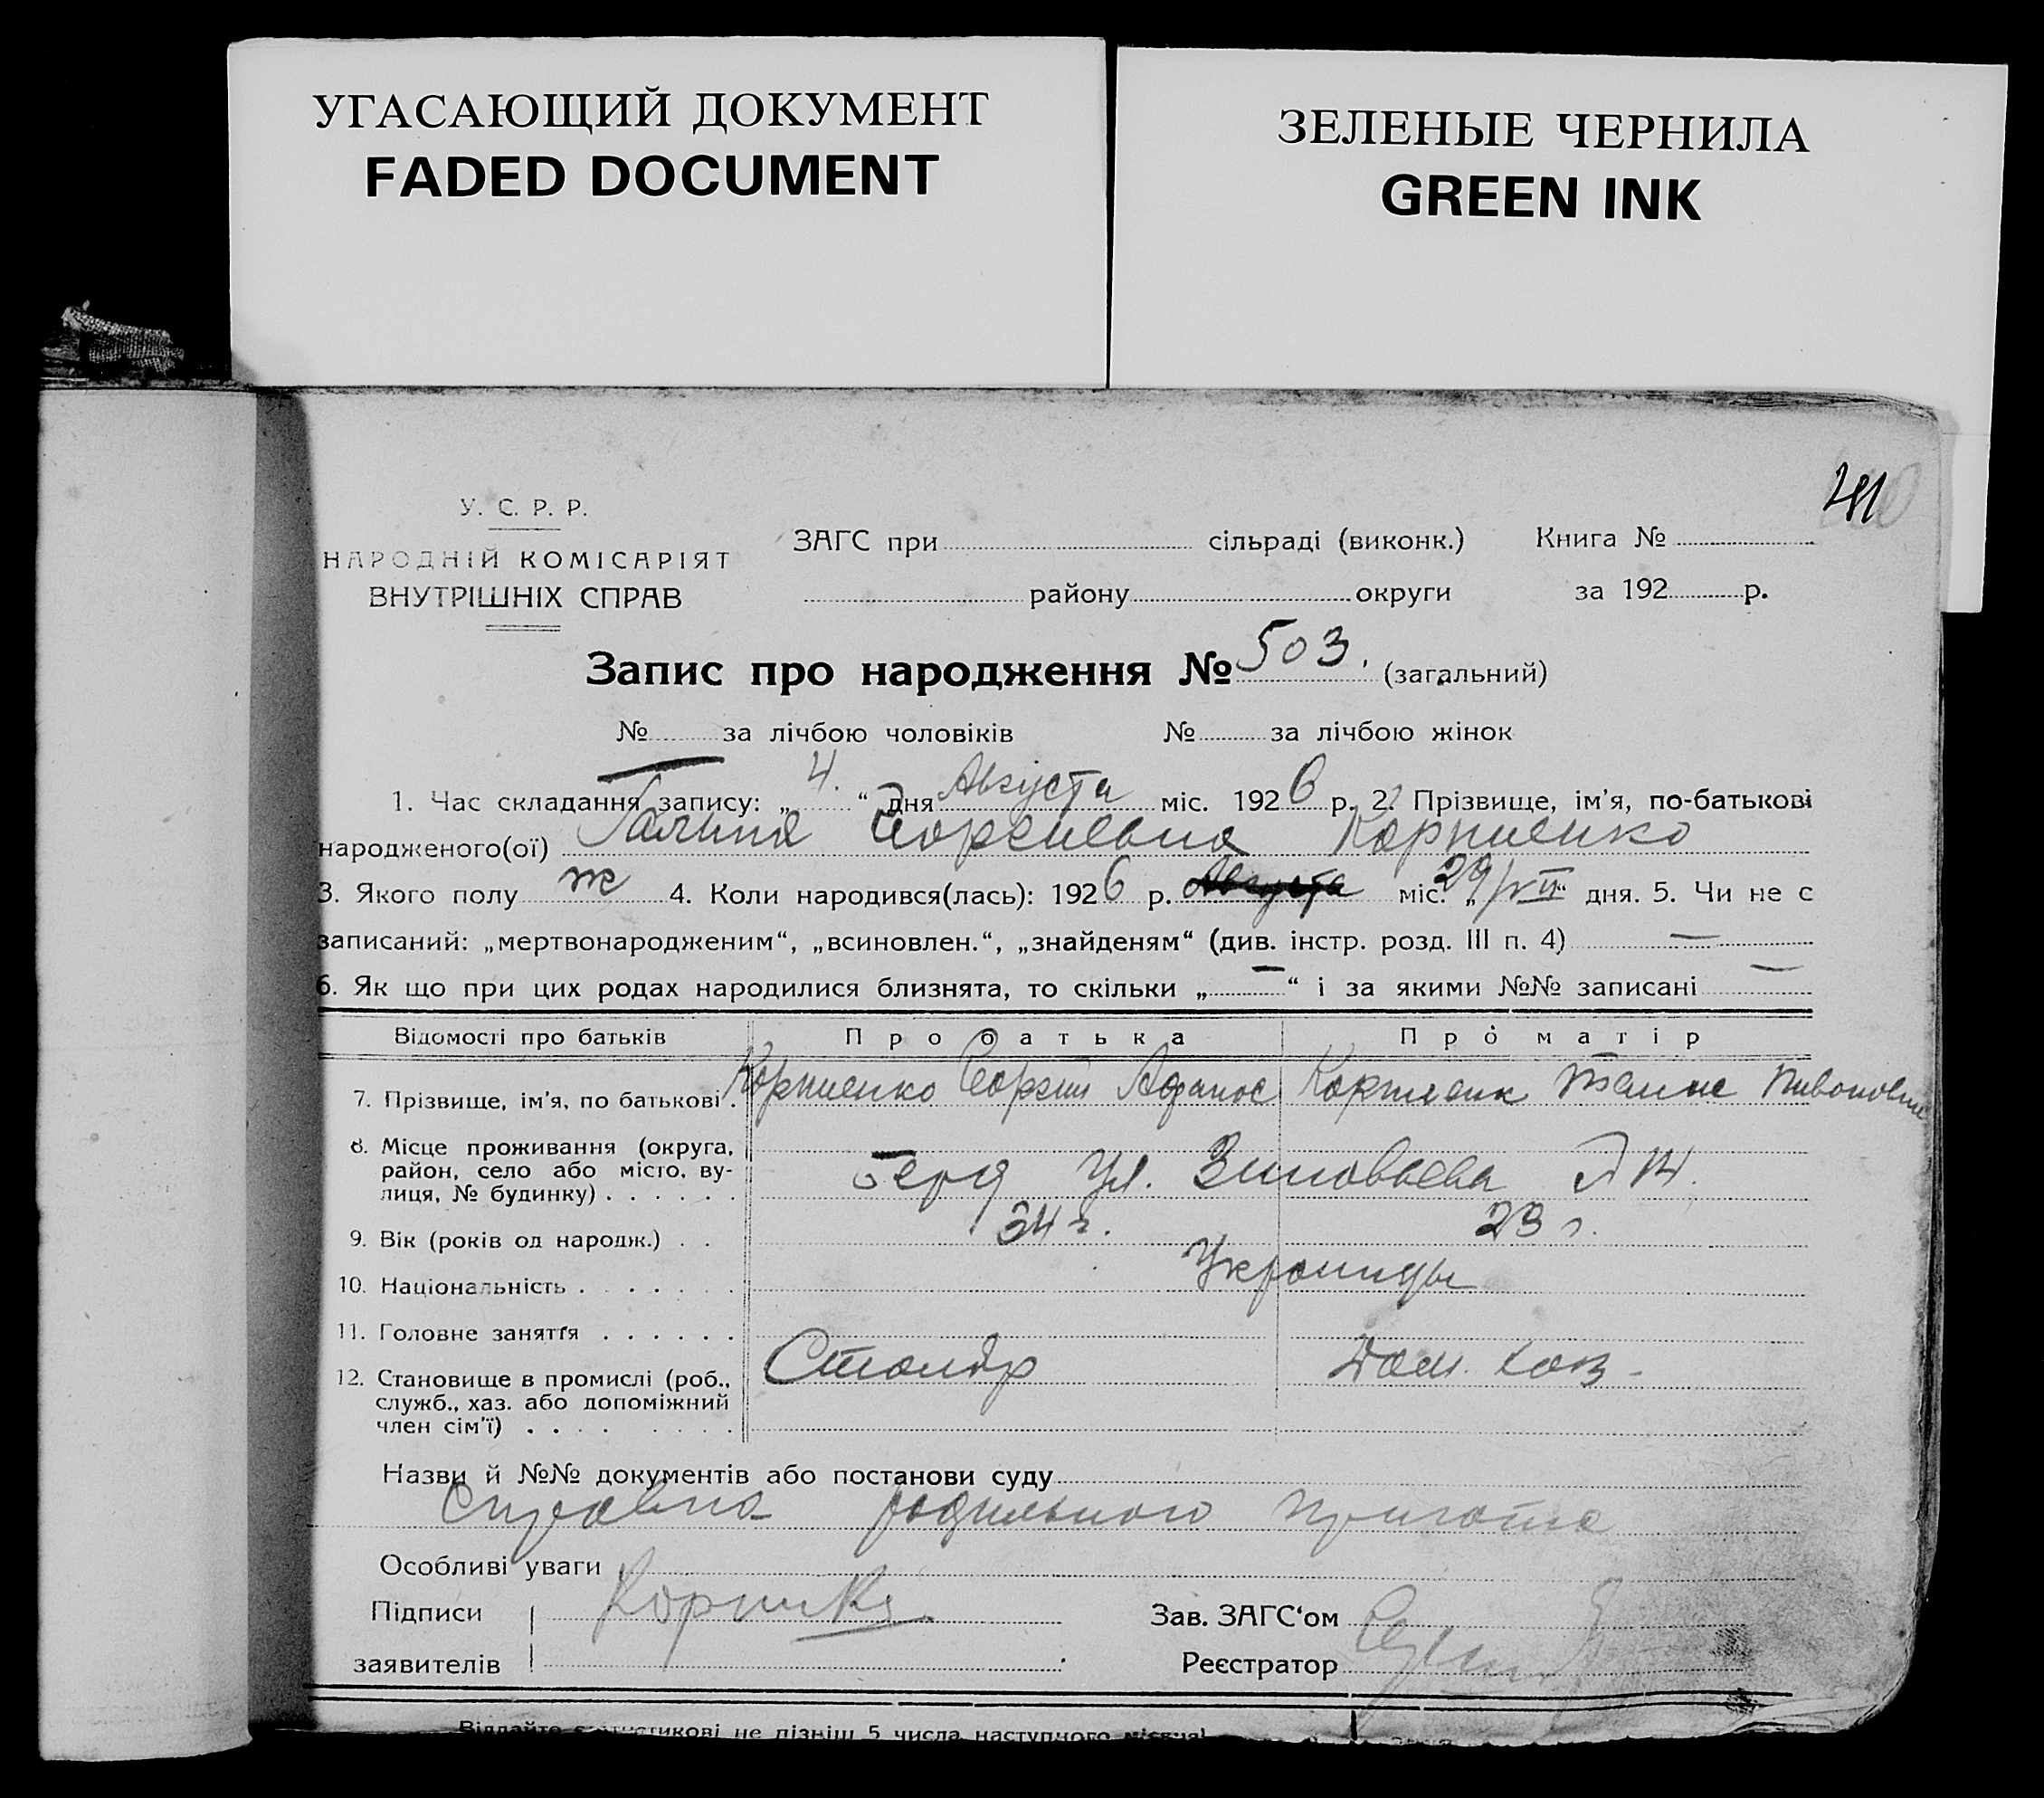 УГАСАЮЩИЙ ДОКУМЕНТ
FADED DOCUMENT
ЗЕЛЕНЫЕ ЧЕРНИЛА
GREEN INK
У. С. Р. Р.
НАРОДНІЙ КОМІСАРІЯТ
ВНУТРІШНІХ СПРАВ
ЗАГС при сільраді (виконк.) Книга №
району округи за 192 р.
Запис про народження № 503. (загальний)
№ за лічбою чоловіків № за лічбою жінок
1. Час складання запису: „4.“ дня Августа міс. 1926 р. 2. Прізвище, ім'я, по-батькові
народженого(ої) Галина Георгиевна Корниенко
3. Якого полу ж 4. Коли народився(лась): 1926 р. Августа міс. „29/VII“ дня. 5. Чи не є
записаний: „мертвонародженим“, „всиновлен.“, „знайденям“ (див. інстр. розд. III п. 4) —
6. Як що при цих родах народилися близнята, то скільки „—“ і за якими №№ записані —
Відомості про батьків Про батька Про матір
7. Прізвище, ім'я, по батькові . Корниенко Георгий Афанас
8. Місце проживання (округа,
район, село або місто, ву-
лиця, № будинку) . . . . . . Ул. Зиновьева
9. Вік (років од народж.) . . 34 г. 23 г.
10. Національність . . . . . . . Украинцы
11. Головне заняття . . . . . .
Столяр Дом. хоз.
12. Становище в промислі (роб.,
служб., хаз. або допоміжний
член сім'ї) . . . . . . . .
Назви й №№ документів або постанови суду
Справка родильного приюта
Особливі уваги
Підписи Зав. ЗАГС'ом
заявителів Реєстратор
не пізніш 5 числа наступного місяця!